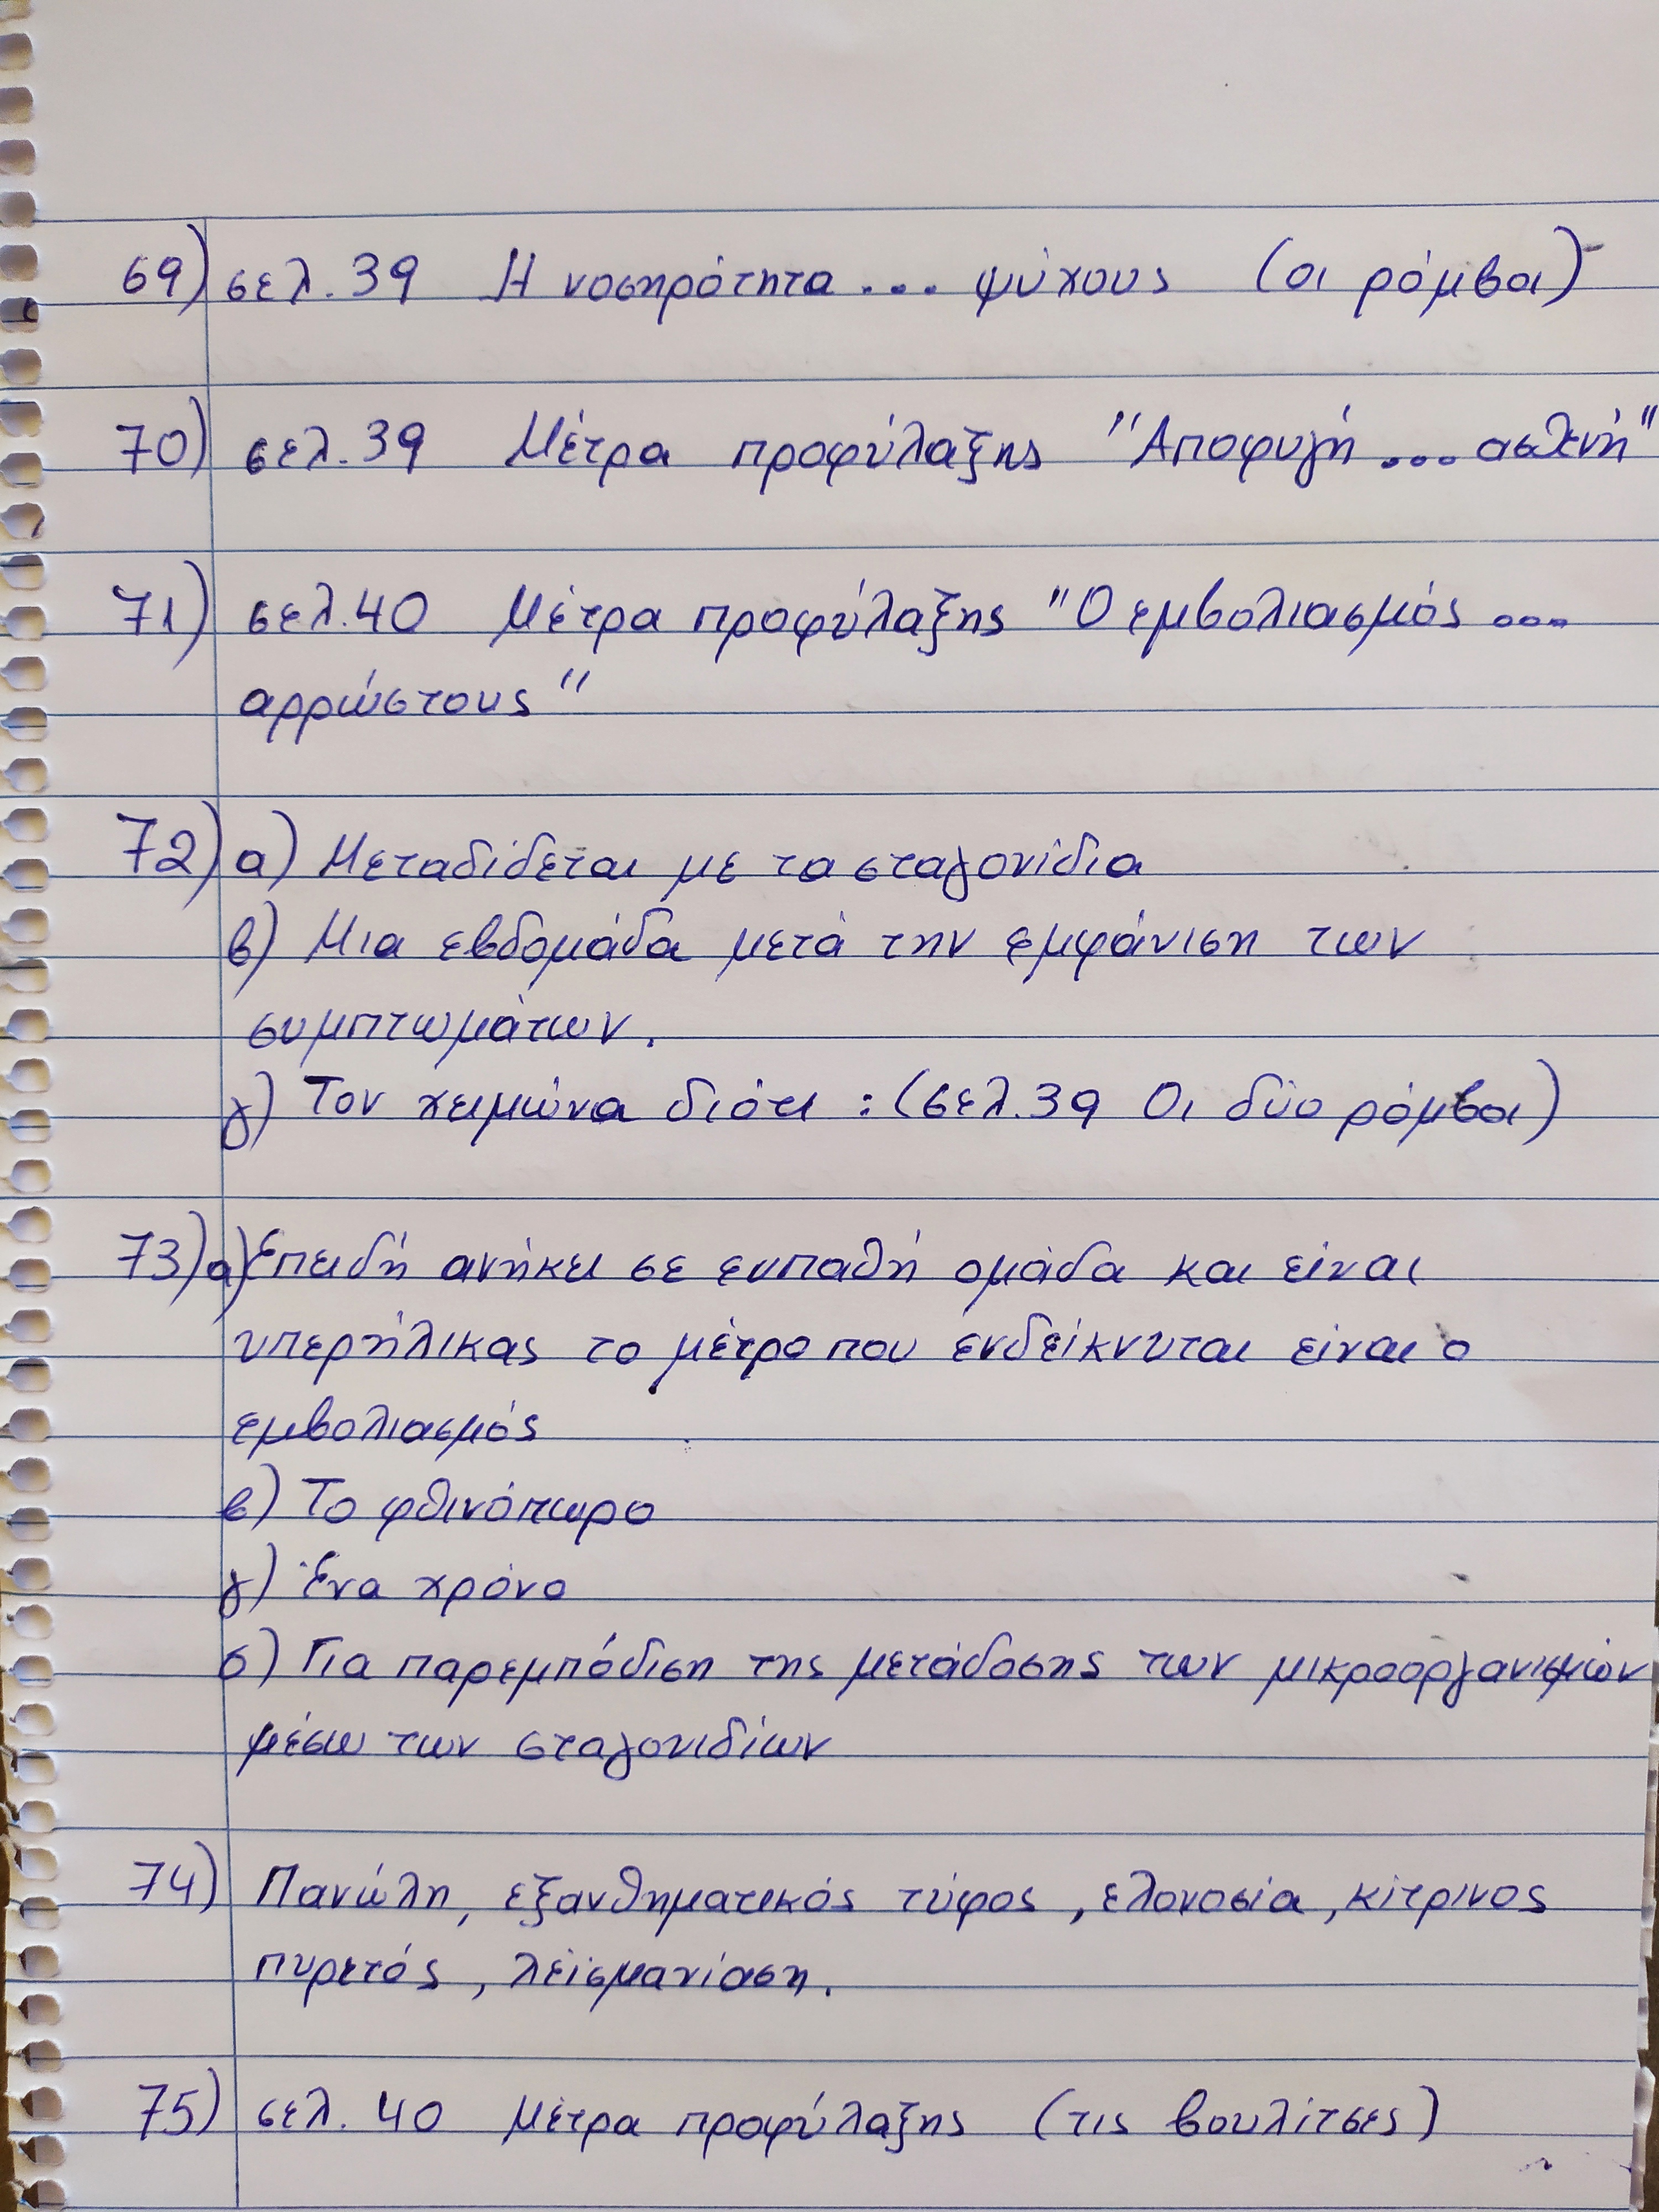 69) σελ. 39 Η νοσηρότητα ... ψύχους (οι ρόμβοι)
70) σελ. 39 Μέτρα προφύλαξης "Αποφυγή ... ασθενή"
71) σελ. 40 Μέτρα προφύλαξης "Ο εμβολιασμός ...
αρρώστους"
72) α) Μεταδίδεται με τα σταγονίδια
β) Μια εβδομάδα μετά την εμφάνιση των
συμπτωμάτων.
γ) Τον χειμώνα διότι : (σελ. 39 Οι δύο ρόμβοι)
73) α) Επειδή ανήκει σε ευπαθή ομάδα και είναι
υπερήλικας το μέτρο που ενδείκνυται είναι ο
εμβολιασμός
β) Το φθινόπωρο
γ) Ένα χρόνο
δ) Για παρεμπόδιση της μετάδοσης των μικροοργανισμών
μέσω των σταγονιδίων
74) Πανώλη, εξανθηματικός τύφος, ελονοσία, κίτρινος
πυρετός, λεϊσμανίαση.
75) σελ. 40 Μέτρα προφύλαξης (τις βουλίτσες)